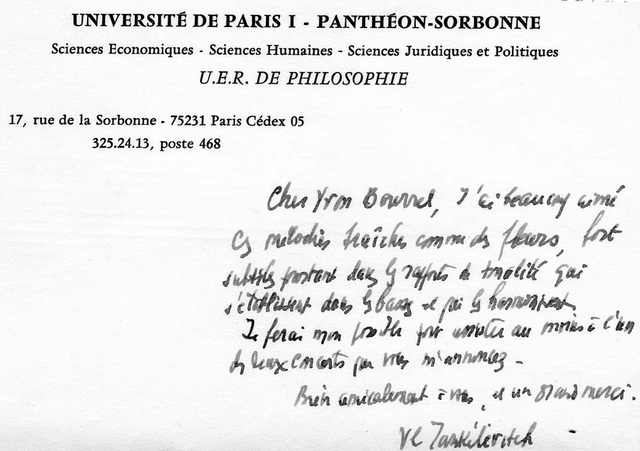 UNIVERSITÉ DE PARIS I - PANTHÉON-SORBONNE
Sciences Economiques - Sciences Humaines - Sciences Juridiques et Politiques
U.E.R. DE PHILOSOPHIE
17, rue de la Sorbonne - 75231 Paris Cédex 05
325.24.13, poste 468
Cher Yvon Bourrel, J'ai beaucoup aimé
ces mélodies fraîches comme des fleurs, fort
subtiles pourtant dans les rapports de tonalité qui
s'établissent dans les basses et par les harmonies.
Je ferai mon possible pour assister au moins à l'un
des deux concerts que vous m'annoncez.
Bien amicalement à vous, et un grand merci.
Vl Jankélévitch